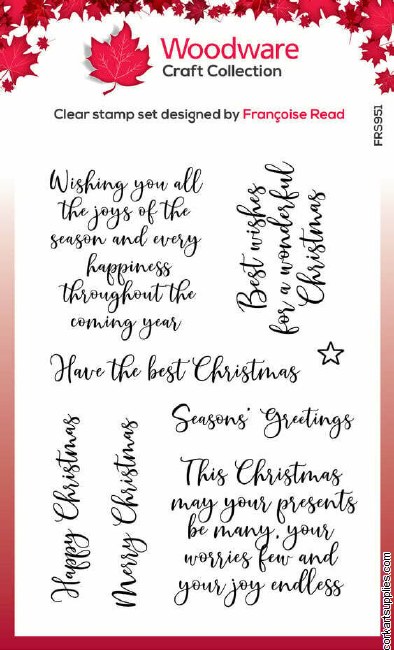 Woodware
Craft Collection
Clear stamp set designed by Françoise Read
FRS951
Wishing you all
the joys of the
season and every
happiness
throughout the
coming year
Best wishes
for a wonderful
Christmas
Have the best Christmas
Happy Christmas
Merry Christmas
Seasons' Greetings
This Christmas
may your presents
be many, your
worries few and
your joy endless
corkartsupplies.com